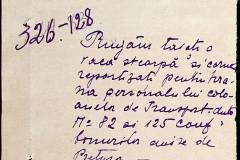 326-128
Rugăm tăiat o
vacă stearpă și carne
repartizati pentru hra
na personalului colo
anelor de Transport auto
Nº 82 si 125 conf
bonurilor avize de